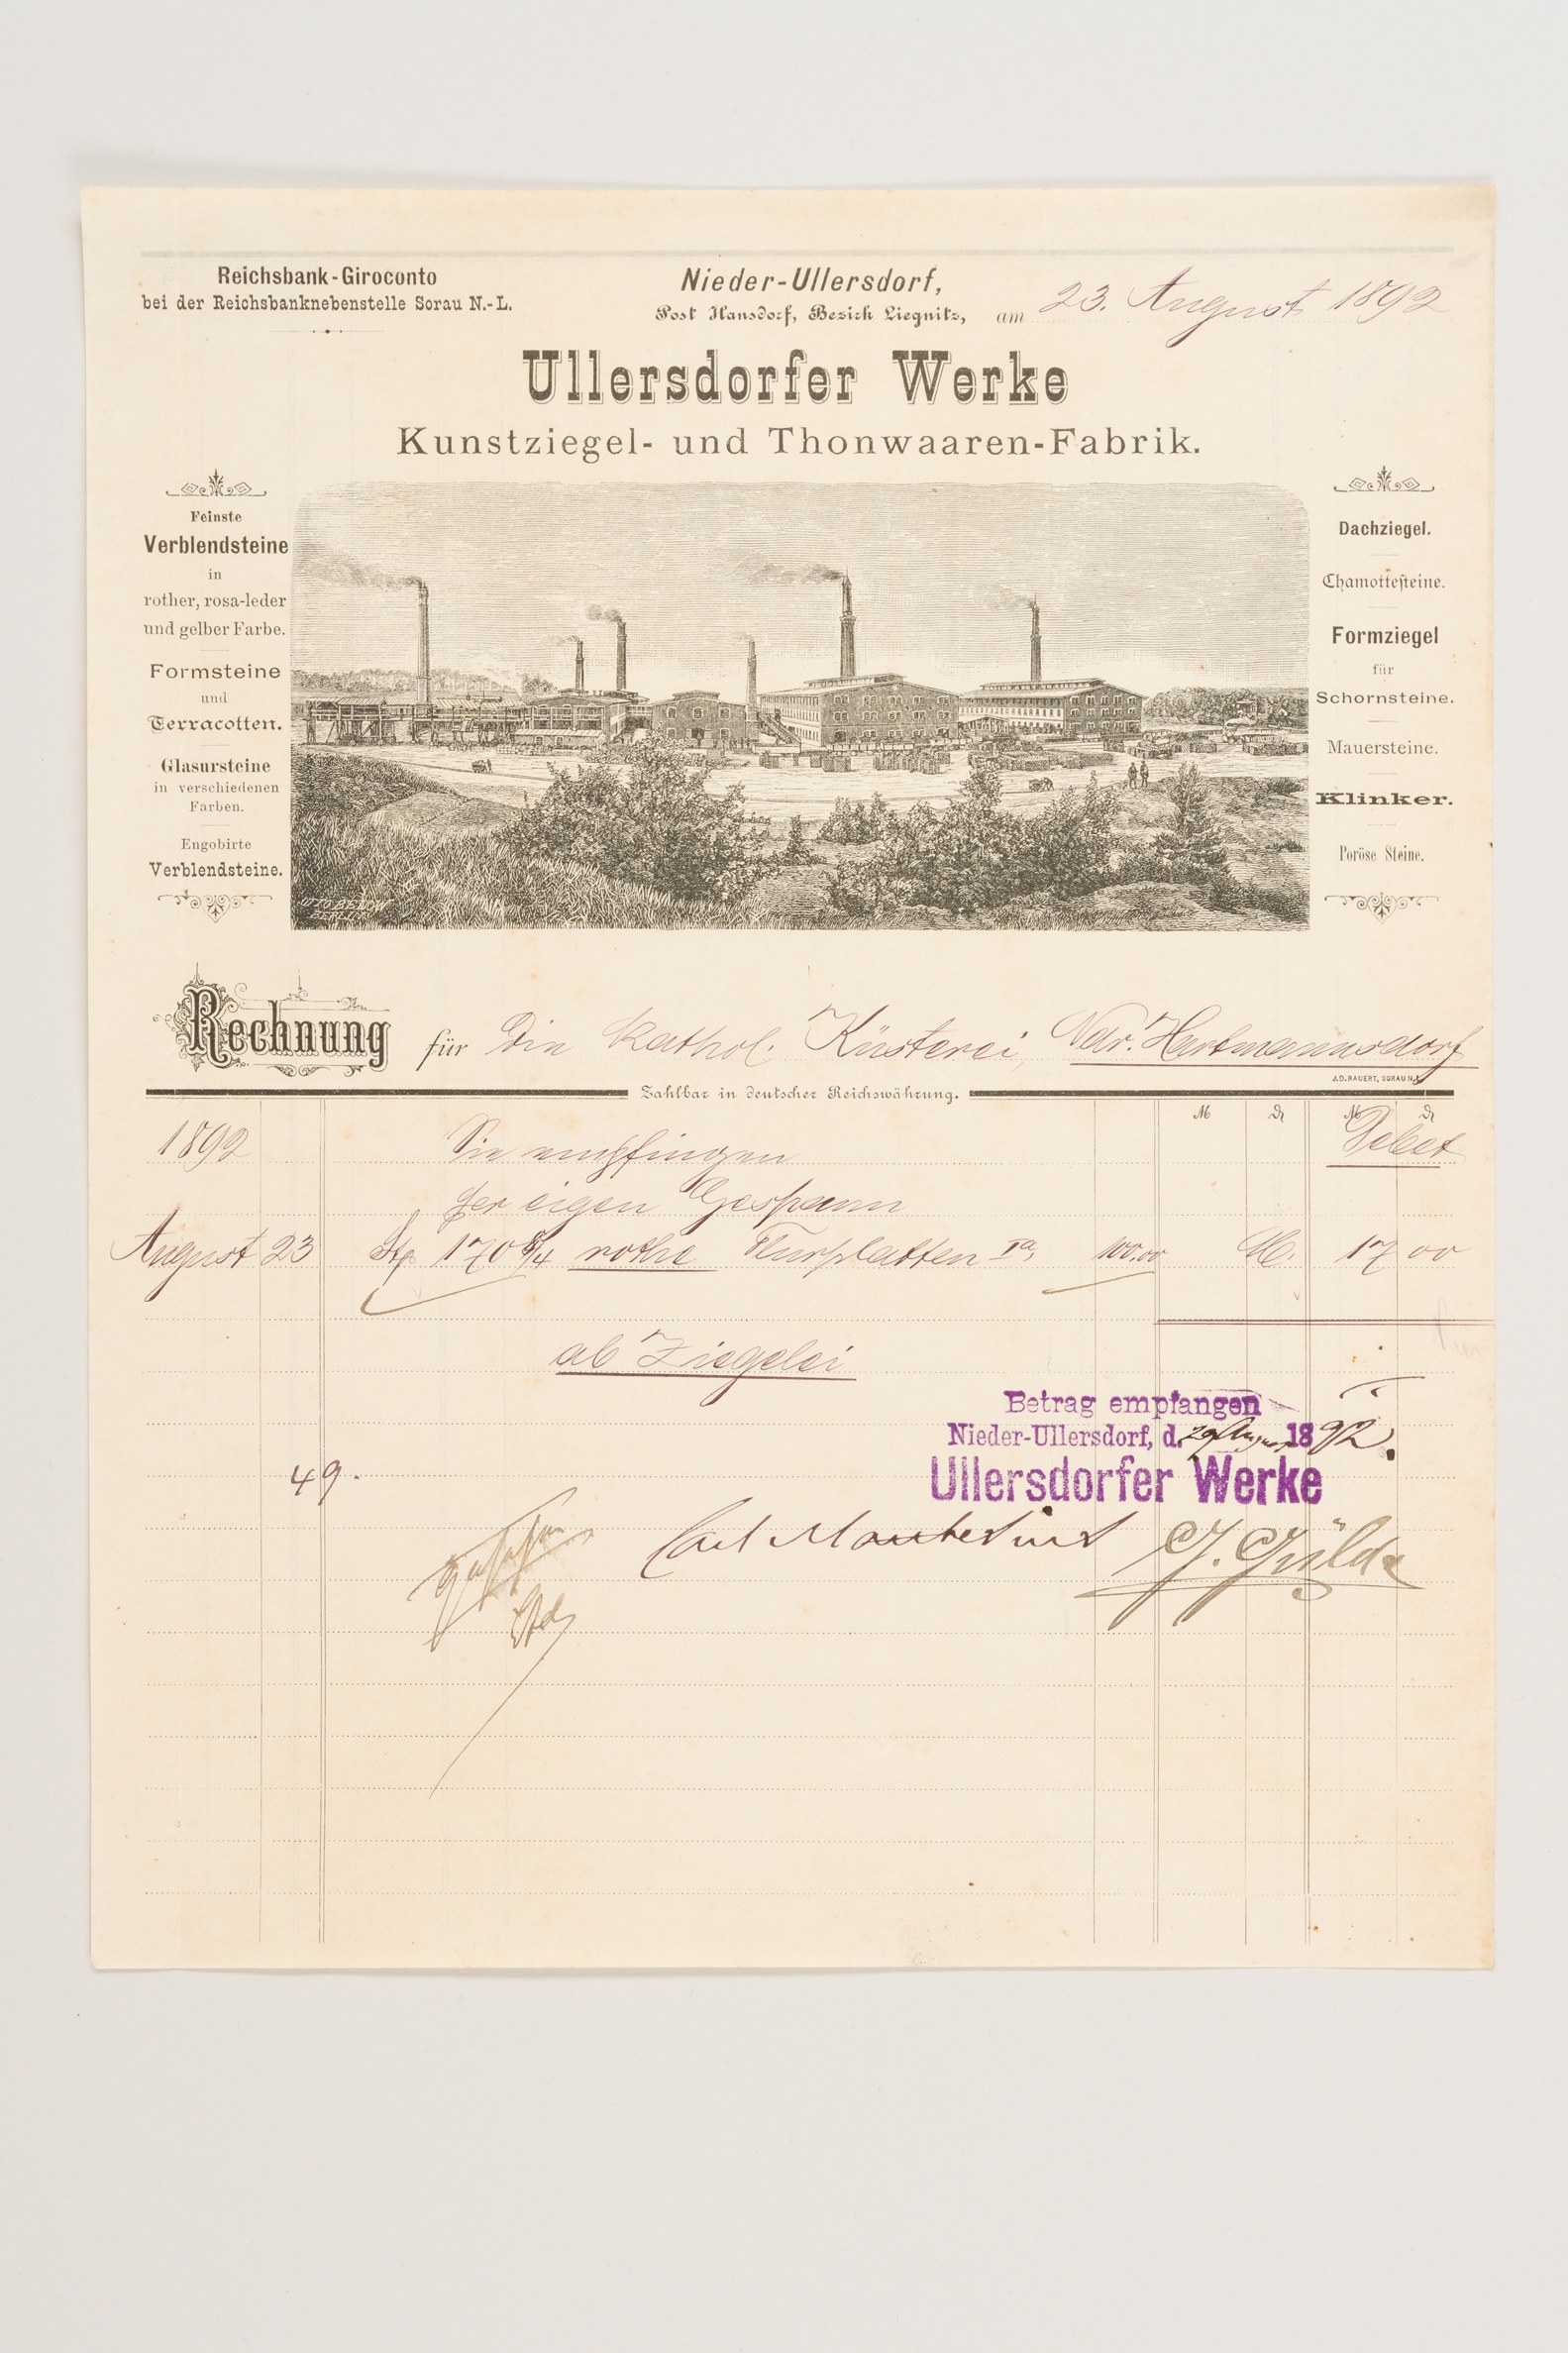 Reichsbank-Giroconto
bei der Reichsbanknebenstelle Sorau N.-L.
Nieder-Ullersdorf,
Post Hansdorf, Bezirk Liegnitz, am 23. August 1892
Ullersdorfer Werke
Kunstziegel- und Thonwaaren-Fabrik.
Feinste
Verblendsteine
in
rother, rosa-leder
und gelber Farbe.
Formsteine
und
Terracotten.
Glasursteine
in verschiedenen
Farben.
Engobirte
Verblendsteine.
OTTO BELOW
BERLIN
Dachziegel.
Chamottesteine.
Formziegel
für
Schornsteine.
Mauersteine.
Klinker.
Poröse Steine.
Rechnung für Die Kathol. Küsterei, Ndr. Hartmannsdorf
J.D.RAUERT, SORAU N.L.
Zahlbar in deutscher Reichswährung.
M ₰ M ₰
1892 Sie empfingen Debet
per eigen Gespann
August 23 Stp. 170 4/4 rothe Flurplatten Ia, 100.00 M. 17 00
ab Ziegelei
Betrag empfangen
Nieder-Ullersdorf, d. 29 August 1892.
Ullersdorfer Werke
49.
Carl